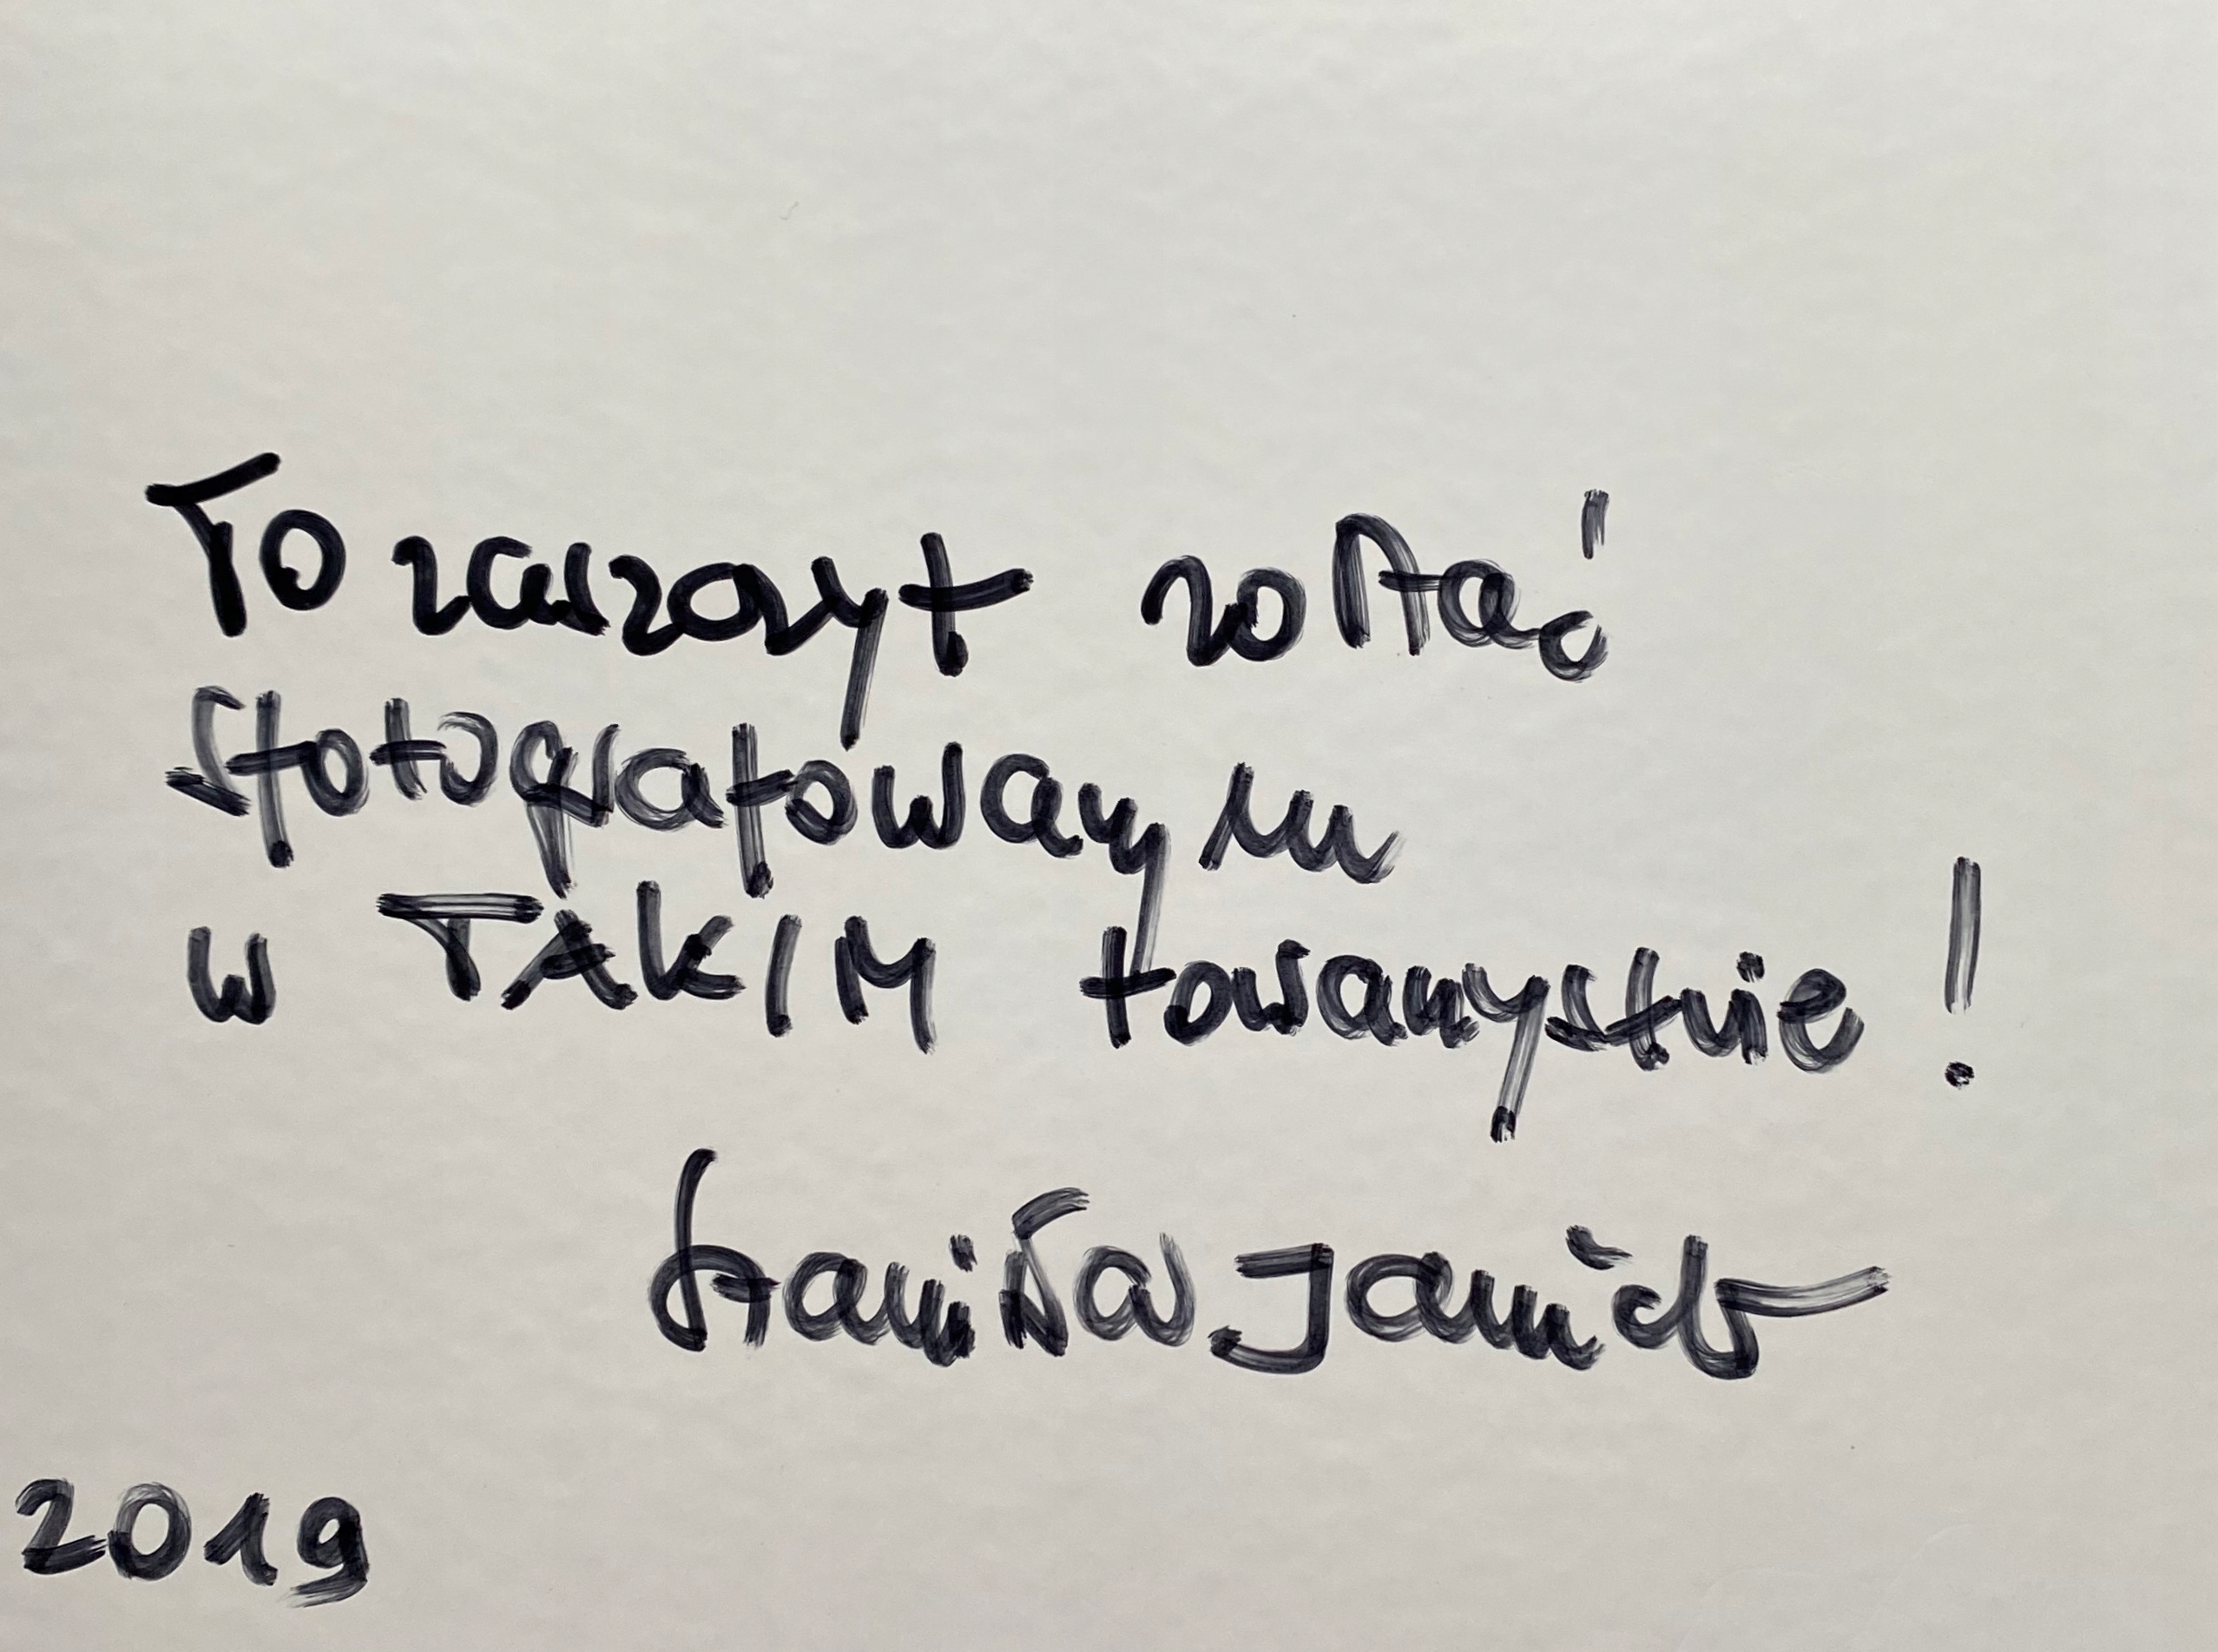 To zaszczyt zostać
sfotografowanym
w TAKIM towarzystwie!
Stanisław Janicki
2019